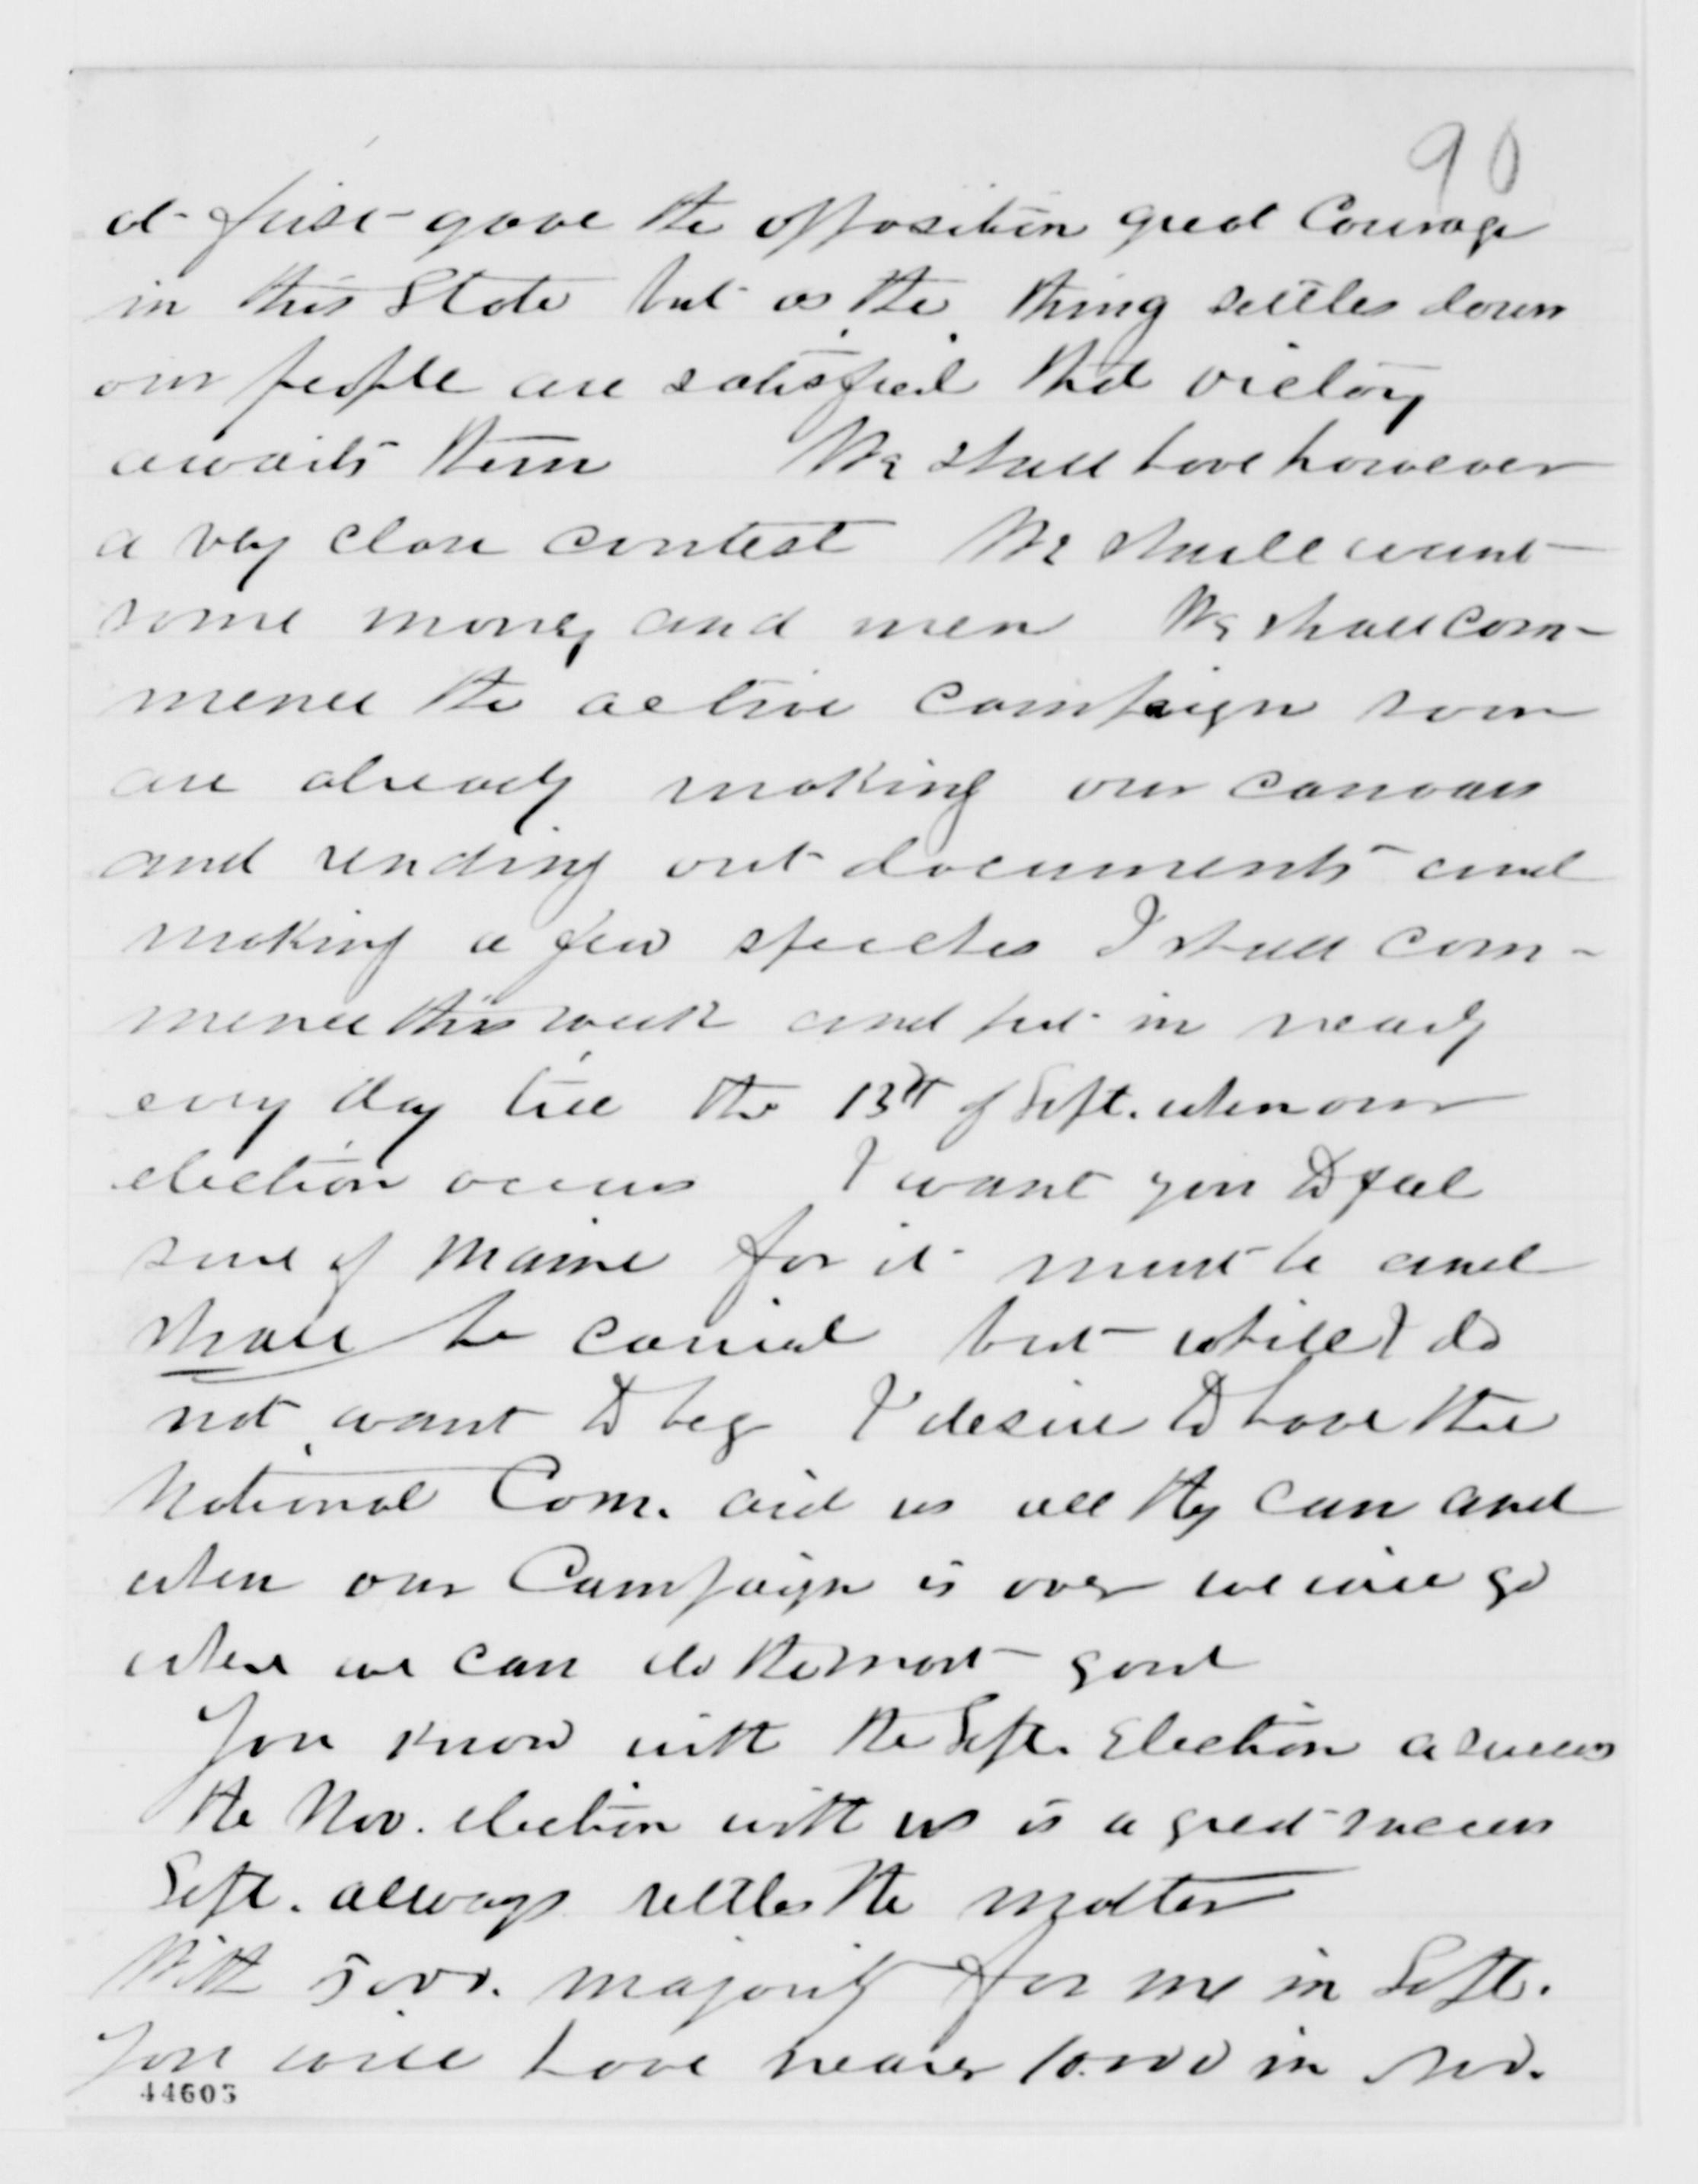 90
at first gave the opposition great Courage
in this State but as the thing settles down
our people are satisfied that victory
awaits them We shall have however
a very close contest We shall want
some money and men We shall com-
mence the active campaign soon
are already making our canvass
and sending out documents and
making a few speeches I shall com-
mence this week and put in nearly
every day till the 13th of Sept. when our
election occurs I want you to feel
sure of Maine for it must be and
shall be carried but while I do
not want to beg I desire to have the
National Com. aid us all they can and
when our Campaign is over we will go
where we can do the most good
You know with the Sept. Election a success
the Nov. election with us is a great success
Sept. always settles the matter
With 5000. majority for me in Sept.
You will have nearer 10.000 in Nov.
44603